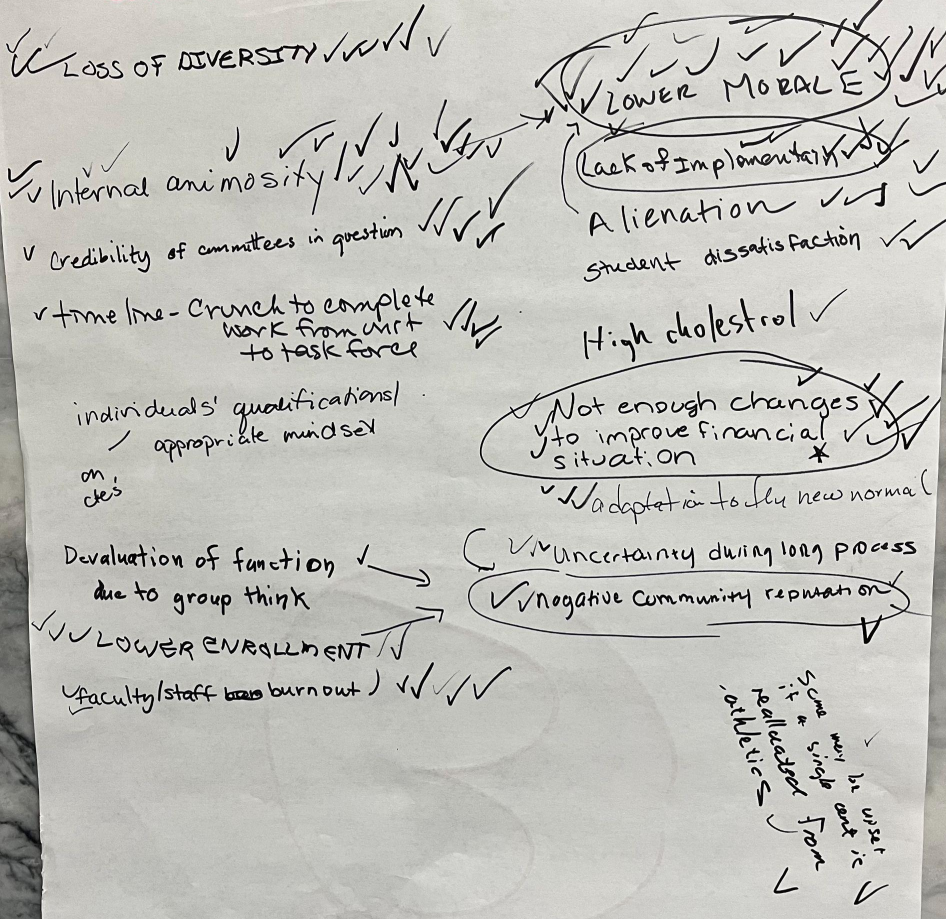 LOSS OF DIVERSITY
Internal animosity
Credibility of committees in question
timeline - Crunch to complete
work from
to task force
individuals' qualifications/
appropriate mindset
on
ctes
Devaluation of function
due to group think
LOWER ENRALLMENT
faculty/staff burnout
LOWER MORALE
Lack of
Alienation
student dissatisfaction
High cholestrol
Not enough changes
to improve financial
situation
adaptation to new normal
uncertainty during long process
negative community reputation
Some may be upset
if a single cent is
reallocated from
athletics